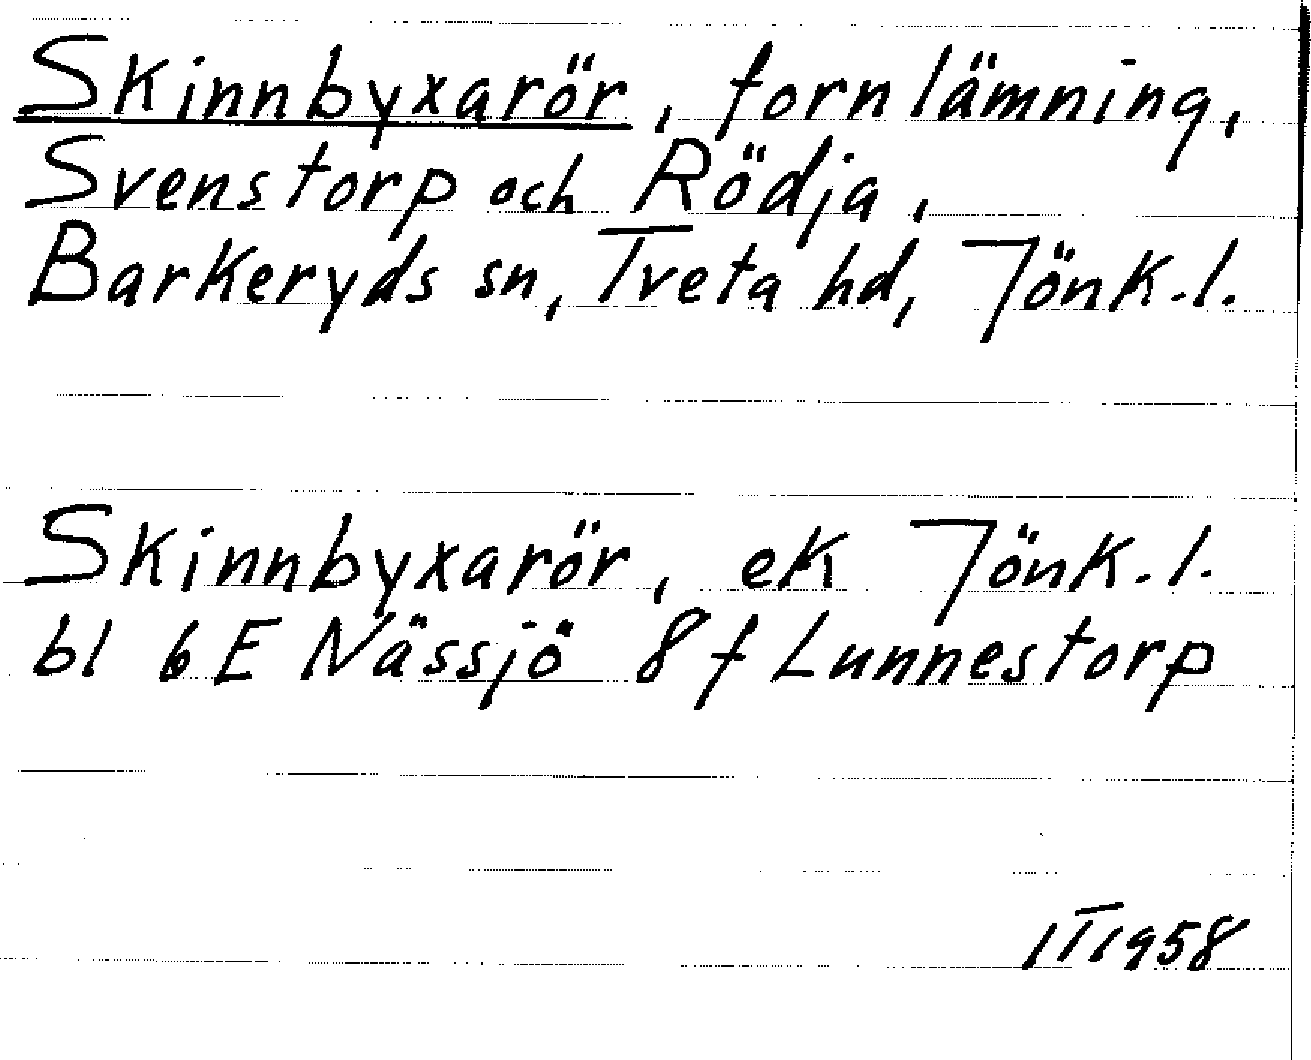 Skinnbyxarör, fornlämning,
Svenstorp och Rödja,
Barkeryds sn, Tveta hd, Jönk.l.
Skinnbyxarör, ek Jönk.l.
bl 6E Nässjö 8f Lunnestorp
1958